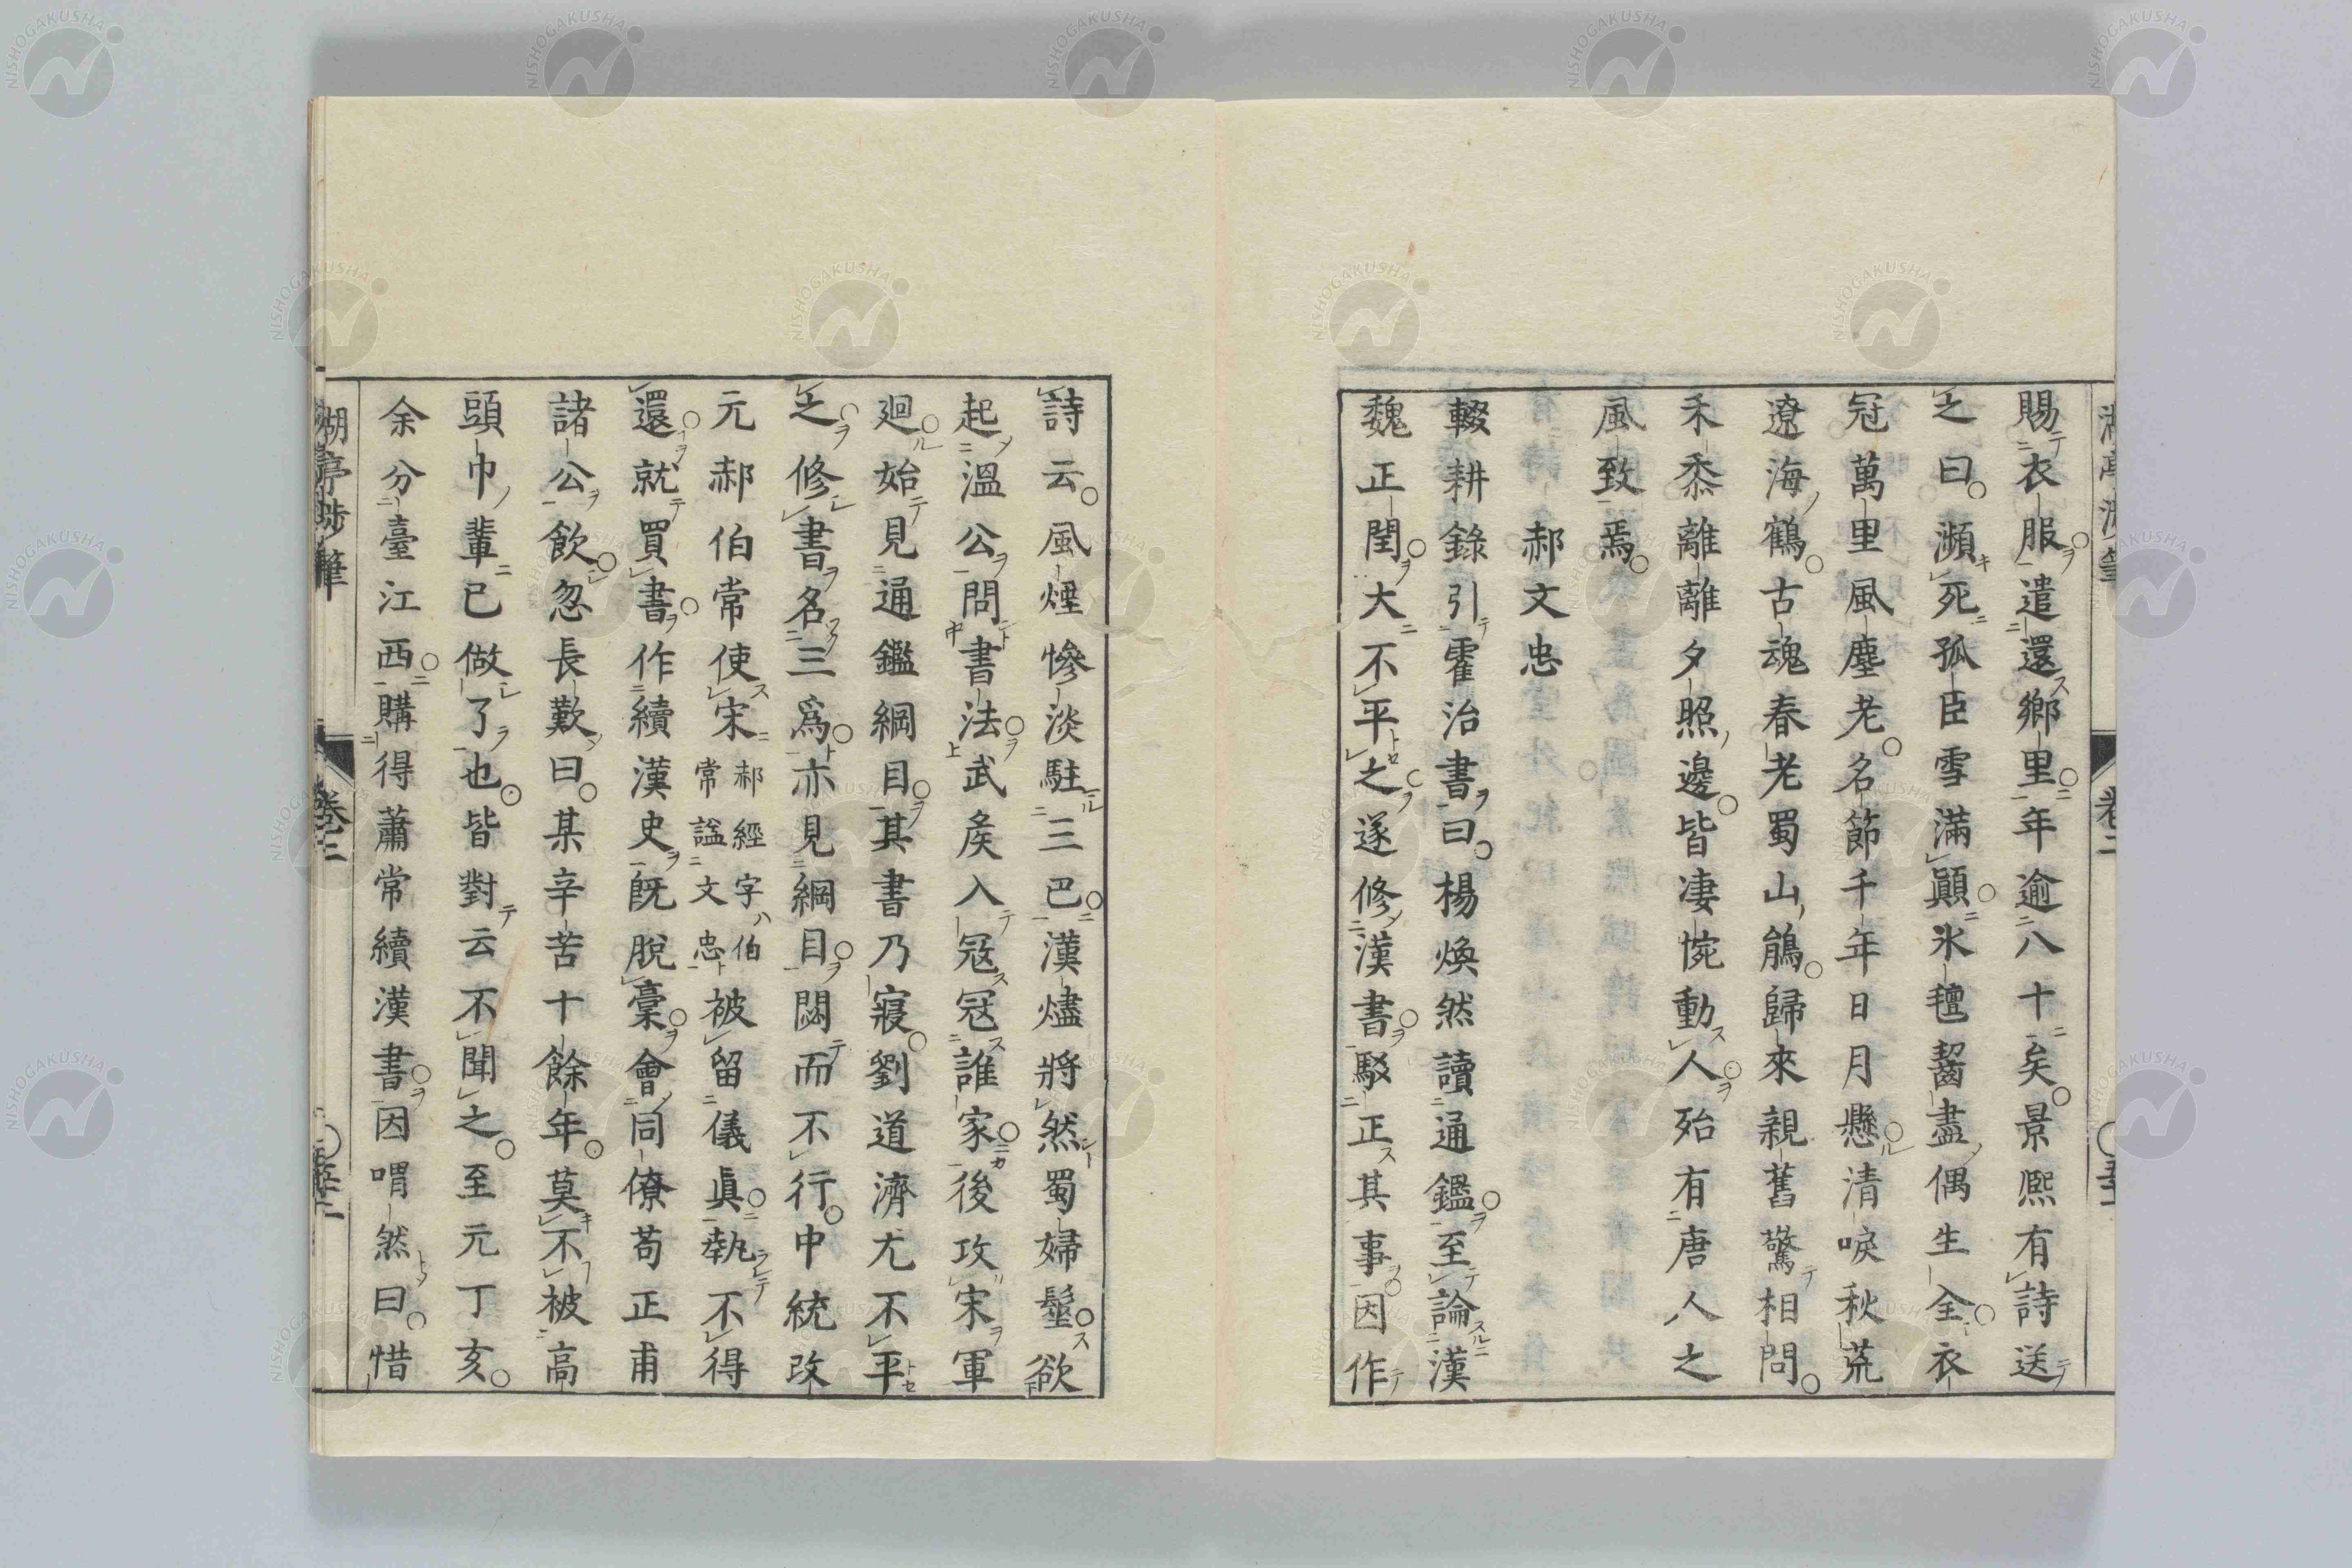 賜衣服遣還鄉里年逾八十矣景熙有詩送
之曰瀕死孤臣雪滿顚氷氊齧盡偶生全衣
冠萬里風塵老名節千年日月懸清唳秋荒
遼海鶴古魂春老蜀山鵑歸來親舊驚相問
禾黍離離夕照邊皆凄惋動人殆有唐人之
風致焉
郝文忠
輟耕錄引霍治書曰楊煥然讀通鑑至論漢
魏正閏大不平之遂修漢書駁正其事因作
詩云風煙慘淡駐三巴漢燼將然蜀婦髽欲
起溫公問書法武矦入冦冦誰家後攻宋軍
廻始見通鑑綱目其書乃寢劉道濟尤不平
之修書名三爲亦見綱目閟而不行中統改
元郝伯常使宋郝經字伯常諡文忠被留儀眞執不得
還就買書作續漢史旣脫稾會同僚苟正甫
諸公飮忽長歎曰某辛苦十餘年莫不被高
頭巾輩已做了也皆對云不聞之至元丁亥
余分臺江西購得蕭常續漢書因喟然曰惜
湖亭涉筆
卷三